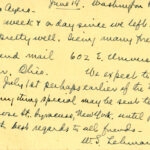 Ayers- June 14, Washington
week & a day since we left
pretty well, being many for
and mail 602 E. Univers
Ohio. We expect to
July 1st perhaps earlier if the
anything special may be sent to
St. Syracuse, New York, until
best regards to all friends.
W. S. Lehman